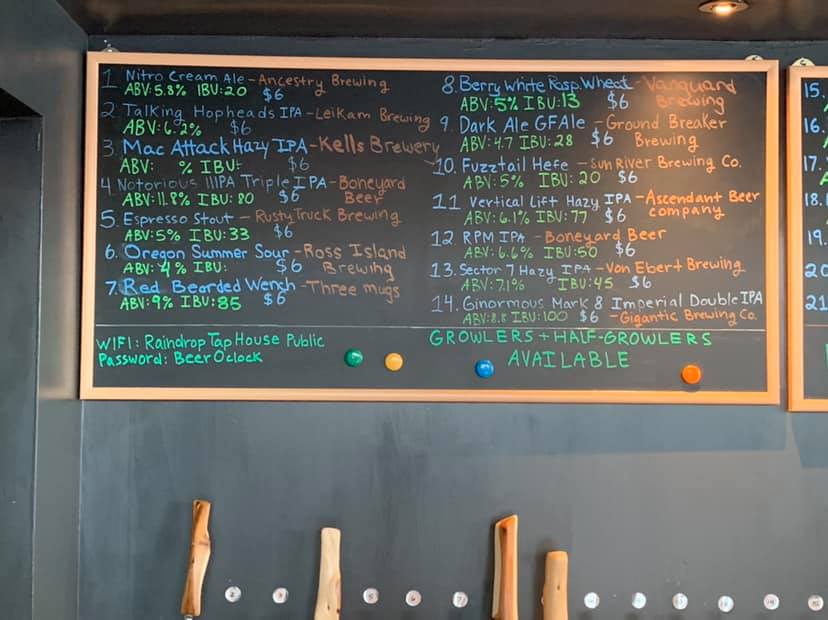 1 Nitro Cream Ale - Ancestry Brewing
ABV: 5.8% IBU: 20 $6
2 Talking Hopheads IPA - Leikam Brewing
ABV: 6.2% $6
3. Mac Attack Hazy IPA - Kells Brewery
ABV: % IBU: $6
4 Notorious IIIPA Triple IPA - Boneyard
Beer
ABV: 11.8% IBU: 80 $6
5. Espresso Stout - Rusty Truck Brewing
ABV: 5% IBU: 33 $6
6. Oregon Summer Sour - Ross Island
Brewing
ABV: 4% IBU: $6
7. Red Bearded Wench - Three mugs
ABV: 9% IBU: 85 $6
8. Berry White Rasp. Wheat - Vanguard
Brewing
ABV: 5% IBU: 13 $6
9. Dark Ale GFAle - Ground Breaker
Brewing
ABV: 4.7 IBU: 28 $6
10. Fuzztail Hefe - Sun River Brewing Co.
ABV: 5% IBU: 20 $6
11 Vertical Lift Hazy IPA - Ascendant Beer
company
ABV: 6.1% IBU: 77 $6
12 RPM IPA - Boneyard Beer
ABV: 6.6% IBU: 50 $6
13. Sector 7 Hazy IPA - Von Ebert Brewing
ABV: 7.1% IBU: 45 $6
14. Ginormous Mark 8 Imperial Double IPA
ABV: 8.8 IBU: 100 $6 - Gigantic Brewing Co.
WIFI: Raindrop Tap House Public
Password: BeerOclock
GROWLERS + HALF-GROWLERS
AVAILABLE
15.
16.
17.
18.
19.
20
21